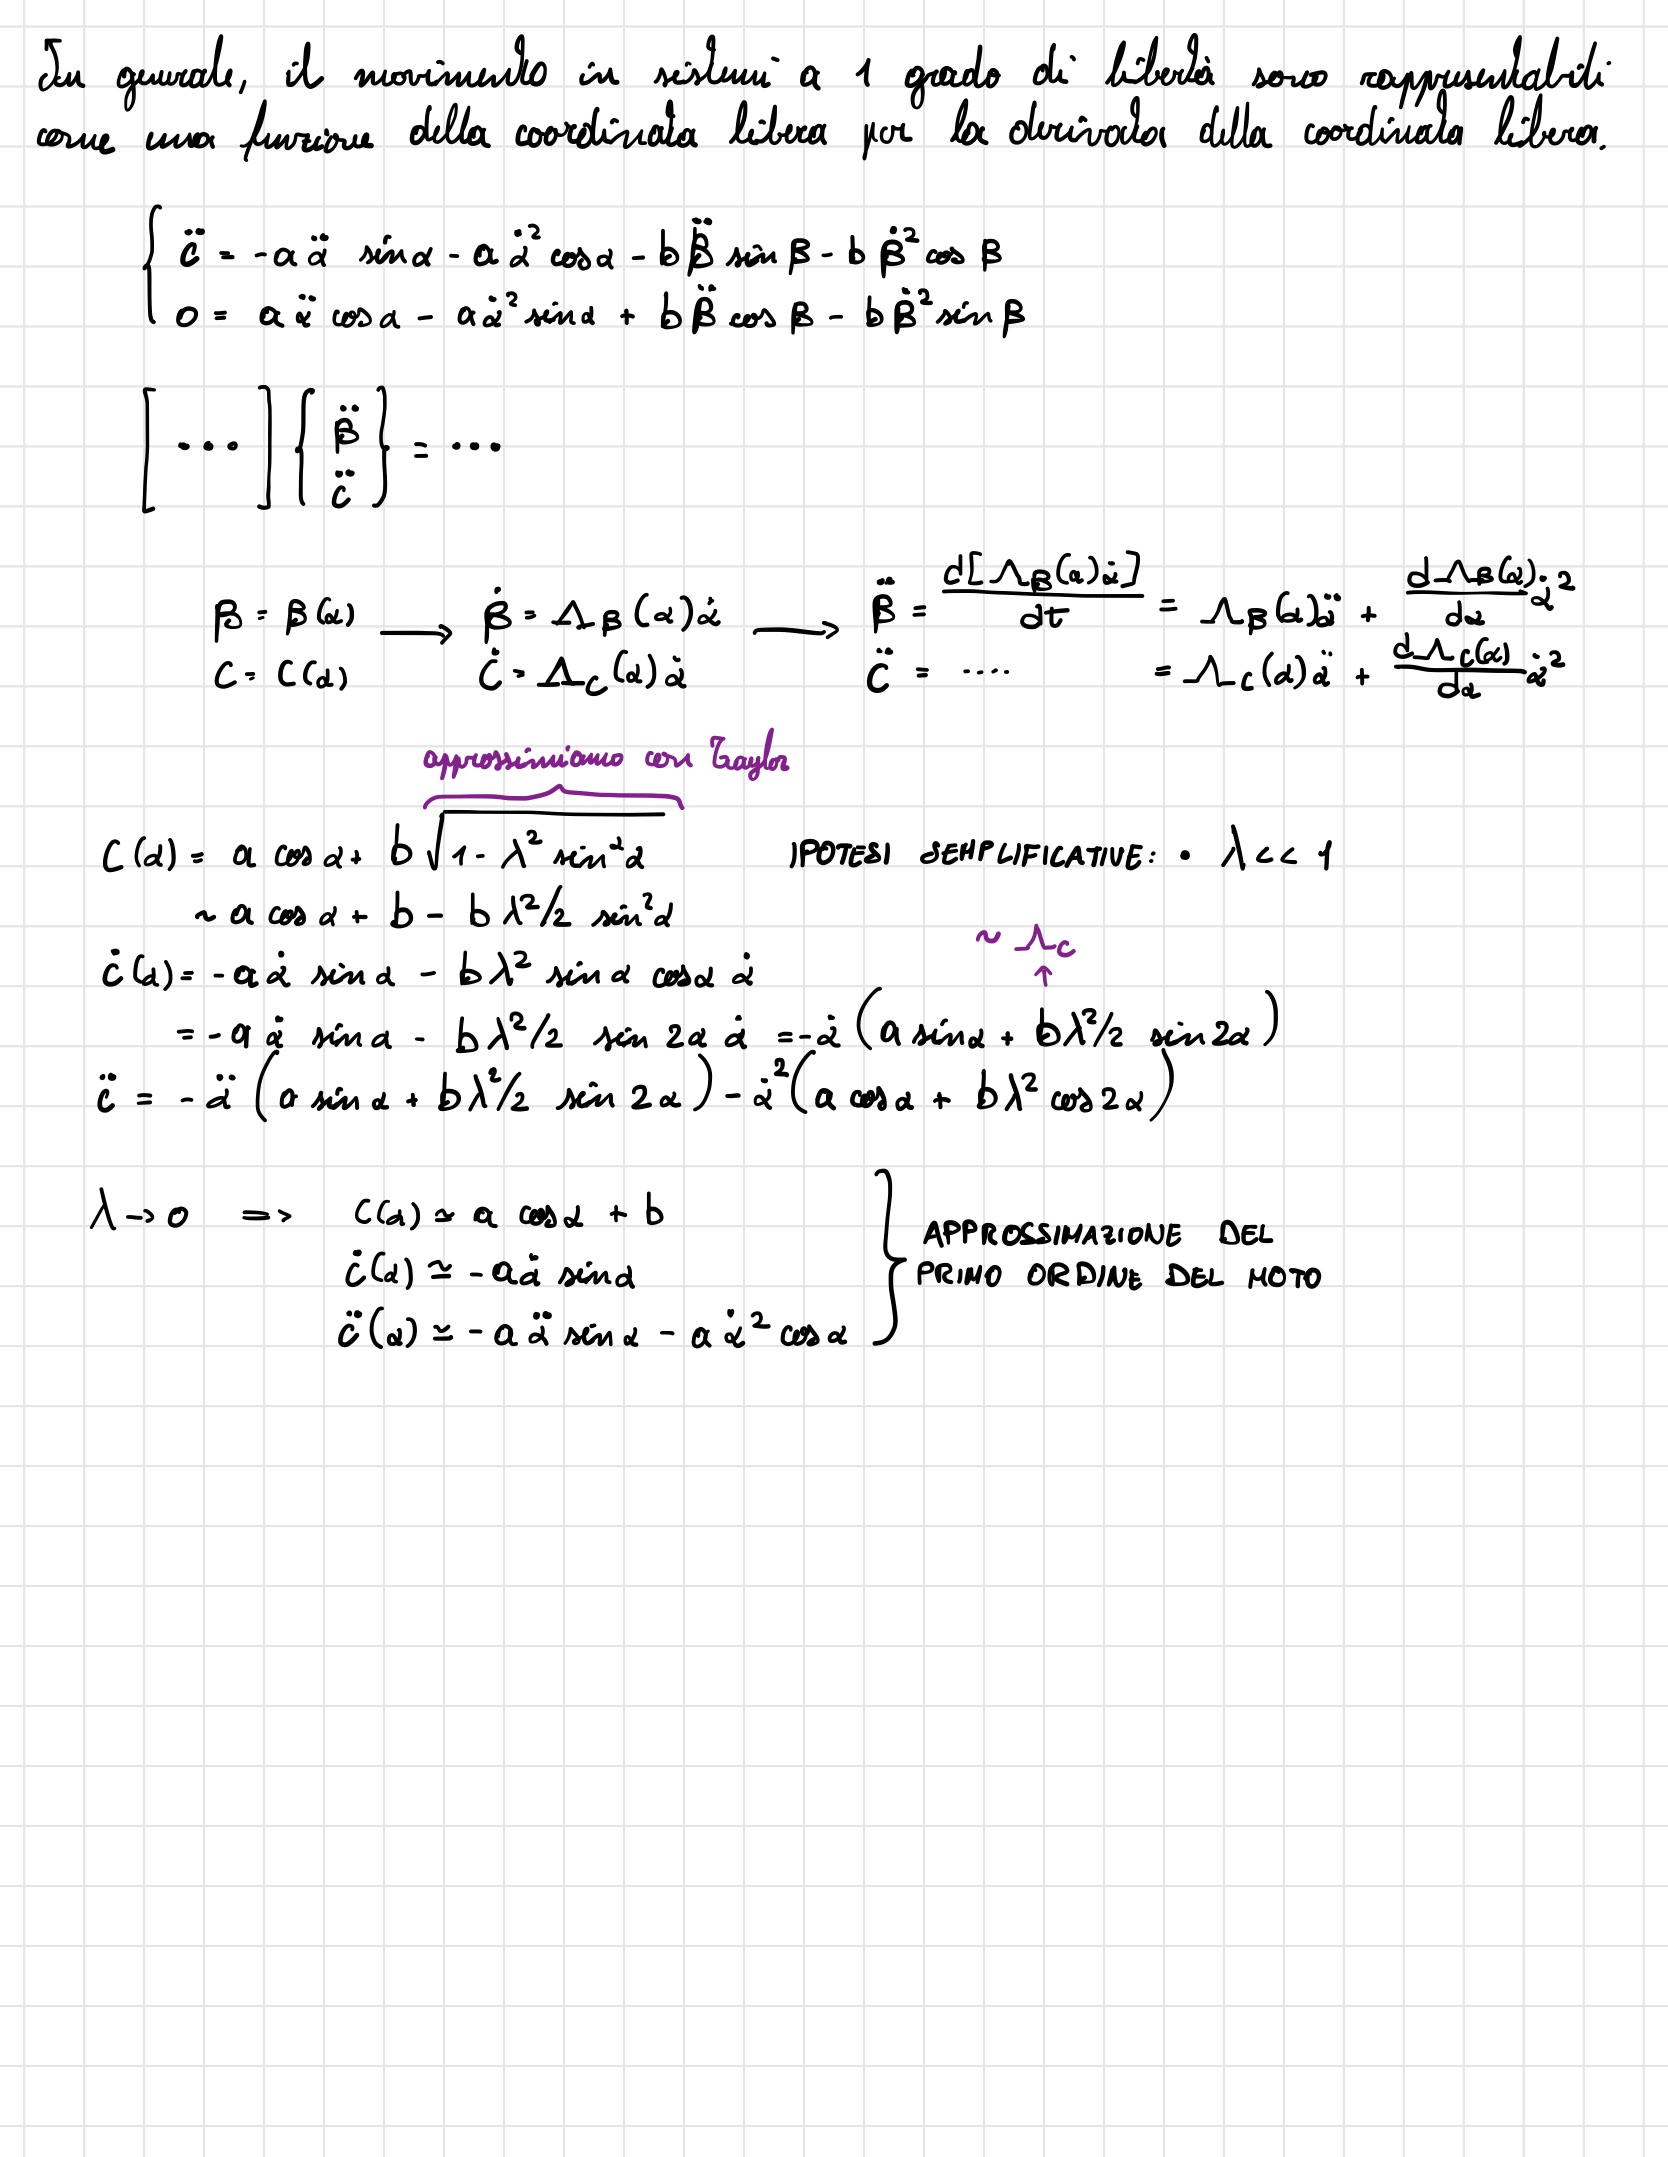 In generale, il movimento in sistemi a 1 grado di libertà sono rappresentabili
come una funzione della coordinata libera per la derivata della coordinata libera.
{ c̈ = -a α̈ sin α - a α̇² cos α - b β̈ sin β - b β̇² cos β
0 = a α̈ cos α - a α̇² sin α + b β̈ cos β - b β̇² sin β
[ ... ] { β̈ c̈ } = ...
β = β(α) → β̇ = Λ_β(α) α̇ → β̈ = d[Λ_β(α) α̇]/dt = Λ_β(α) α̈ + dΛ_β(α)/dα α̇²
C = C(α) Ċ = Λ_C(α) α̇ C̈ = .... = Λ_C(α) α̈ + dΛ_C(α)/dα α̇²
approssimiamo con Taylor
C(α) = a cos α + b √(1 - λ² sin²α) IPOTESI SEMPLIFICATIVE: • λ << 1
~ a cos α + b - b λ²/2 sin²α
~ Λ_C
ċ(α) = -a α̇ sin α - b λ² sin α cos α α̇
↑
= -a α̇ sin α - b λ²/2 sin 2α α̇ = -α̇ (a sin α + b λ²/2 sin 2α)
c̈ = -α̈ (a sin α + b λ²/2 sin 2α) - α̇² (a cos α + b λ² cos 2α)
λ → 0 => C(α) ≃ a cos α + b
ċ(α) ≃ -a α̇ sin α
c̈(α) ≃ -a α̈ sin α - a α̇² cos α
} APPROSSIMAZIONE DEL
PRIMO ORDINE DEL MOTO